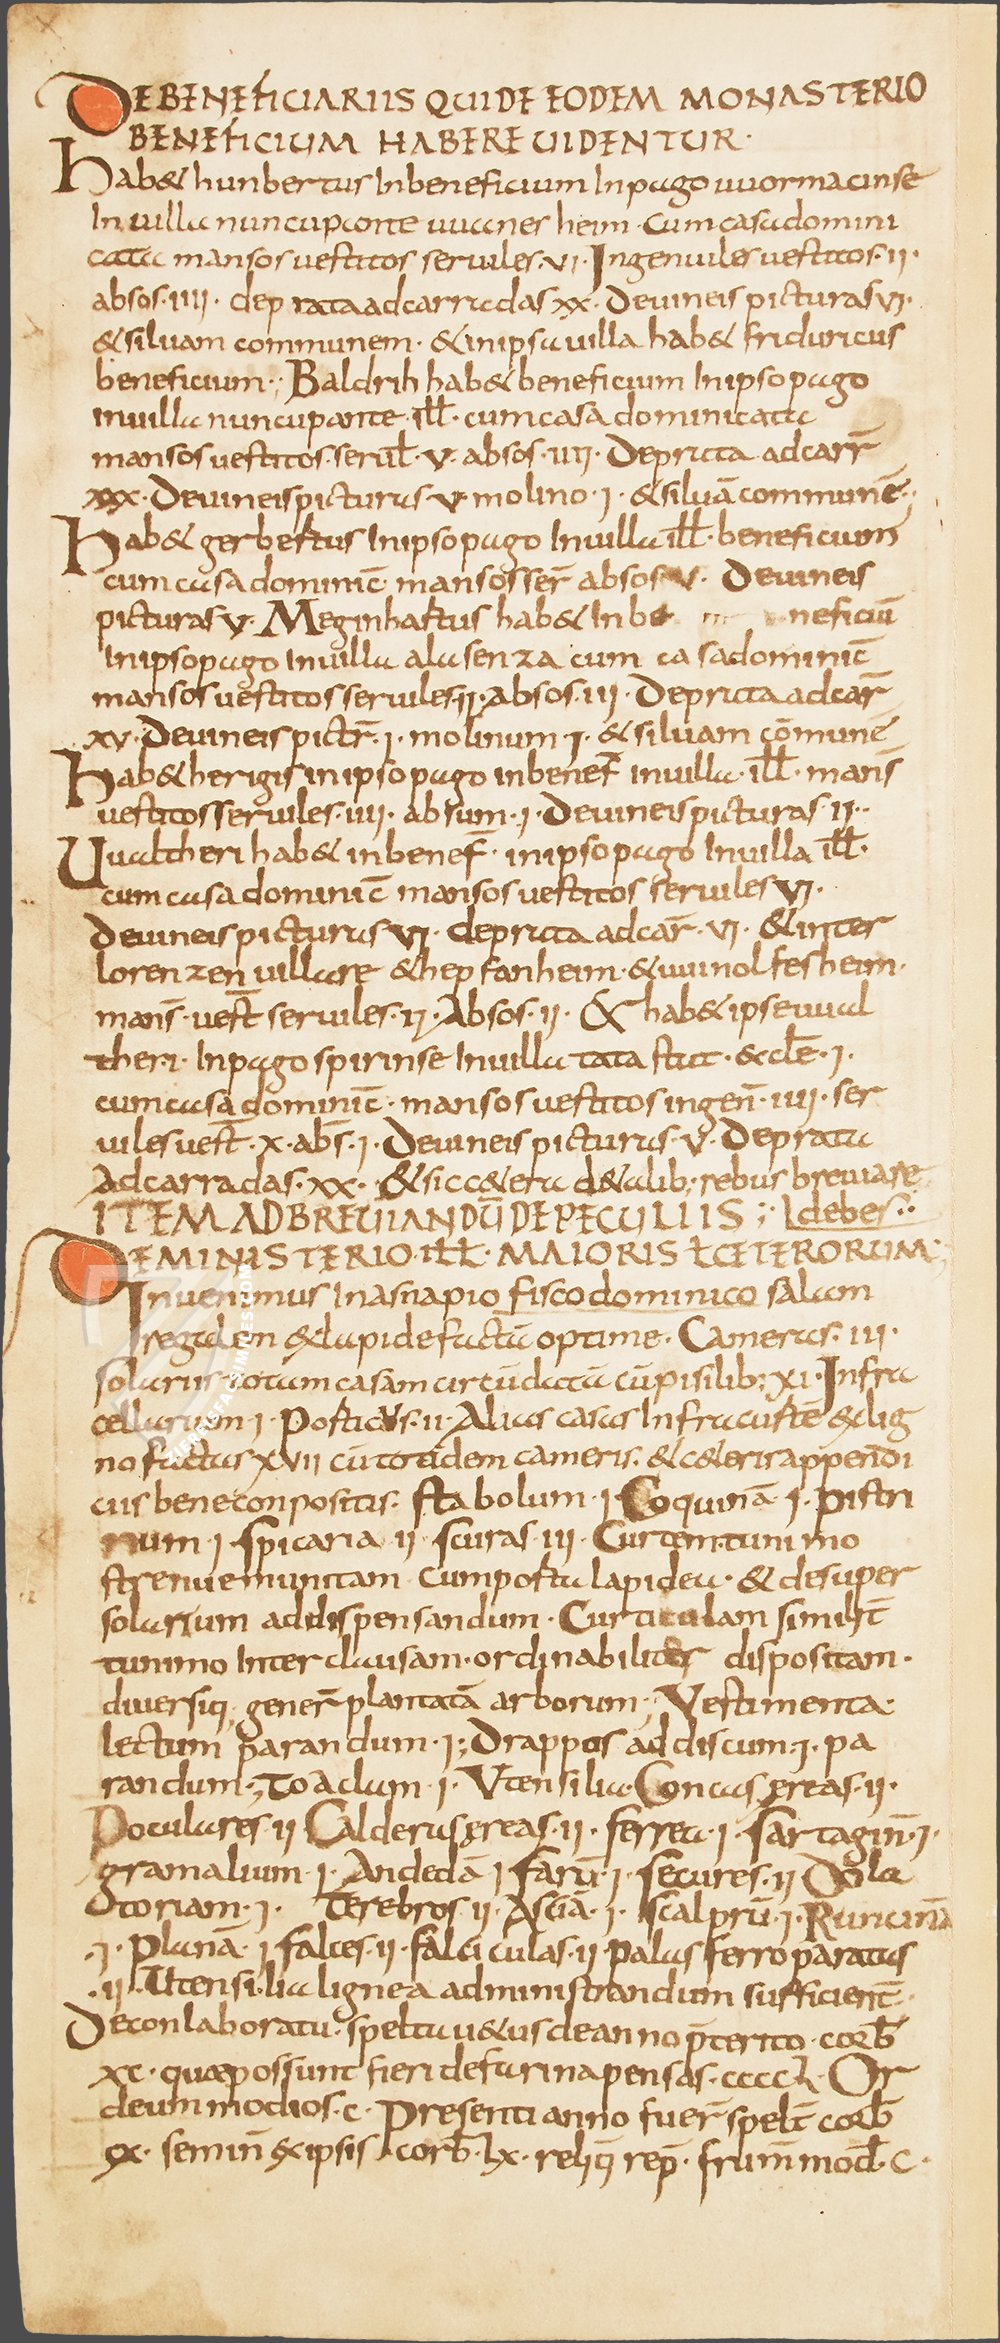 DE BENEFICIARIIS QUI DE EODEM MONASTERIO
BENEFICIUM HABERE UIDENTUR·
Hab& hunbertus In beneficium In pago uuormacinse
In uilla nuncupante uuanesheim· cum casa domini
cata mansos uestitos seruiles·VI· Ingenuiles uestitos·II·
absos·IIII· de prata ad carradas XX· De uineis picturas VI·
& siluam communem· & in ipsa uilla hab& friduricus
beneficium·; Baldrih hab& beneficium In ipso pago
in uilla nuncupante·ill̄· cum casa dominicata
mansos uestitos·seruł·V· absos·IIII· De prata ad carr̄
XXX· De uineis picturas V· molino·I· & siluā communē·;
Hab& gerbertus In ipso pago In uilla ill̄· beneficium
cum casa dominic̄ mansos ser̄ absos V· De uineis
picturas V· Meginhartus hab& In be neficiū
In ipso pago In uilla alasenza cum casa dominic̄
mansos uestitos seruiles·II· absos·III· De prata ad car̄
XV· De uineis pictr̄·I· molinum·I· & siluam cōmunē
Hab& herigis in ipso pago in benef̄ in uilla·ill̄· mans̄
uestitos seruiles·IIII· absum·I· De uineis picturas·II·
Uualtheri hab& in benef̄· in ipso pago In uilla ill̄·
cum casa dominic̄ mansos uestitos seruiles VI·
De uineis picturas VI· de prata ad car̄·VI· & inter
lorenzenuillare & hepfanheim·& uuinolfesheim·
mans̄·uest̄ seruiles·II· Absos·II· Et hab& ipse uual
theri· In pago spirinse In uilla tatastat·eccle̅·I·
cum casa dominic̄· mansos uestitos ingen̄·IIII· ser
uiles uest̄·X· abs̄·I· De uineis picturas·V· De prata
ad carradas·XX· & sic c&era d& alib; rebus breuiare
ITEM AD BREUIANDŪ DE PECULIIS;· debes·
DE MINISTERIO·ILL̄·MAIORIS ł CETERORUM·;
Inuenimus In asnapio fisco dominico salam
regalem & lapide factā optime· Cameras·III·
solariis totam casam circūdatā cū pisilib;·XI· Infra
cellarium·I· Porticus·II· Alias casas Infra curtē & lig
no factas XVII cū totidem cameris· & c&eris appendi
ciis bene conpositis· stabolum·I Coquinā·I· Pistri
num·I· spicaria·II· scuras·III· Curtem tunimo
strenue munitam cum porta lapidea· & desuper
solarium ad dispensandum· Curticulam similit̄
tunimo Interclausam· ordinabiliter dispositam·
diuersiq; gener̄ plantatā arborum·; Vestimenta·
lectum parandum·I·; Drappos ad discum·I· pa
randum·; toaclam·I· Vtensilia· Concas ęreas·II·
Poculares·II Calderas ęreas·II· ferrea·I· Sartagin̄·I·
gramalium·I· Andedā·I Farū·I· Secures·II Dola
toriam·I· Terebros·II· Asciā·I· Scalprū·I· Runcinā
·I· Planā·I· Falces·II· Falciculas·II· Palas ferro paratas
·II· Utensilia lignea ad ministrandum sufficient̄·
De conlaboratu· spelta u&us de anno p̄terito·corb̄
XC· quæ possunt fieri de farina pensas·CCCCL· Or
deum modios·C· Presenti anno fuer̄ spelt̄ corb̄
CX· semin̄ ex ipsis corb̄·LX· reliq̄ rep̄· frum̄ mod̄·C·